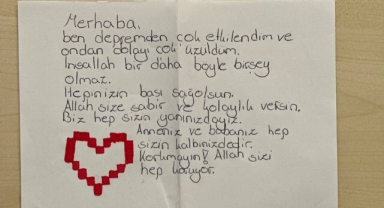 Merhaba,
ben depremden çok etkilendim ve
ondan dolayı çok üzüldüm.
İnsallah bir daha böyle birşey
olmaz.
Hepinizin bası sağolsun.
Allah size sabır ve kolaylık versin.
Biz hep sizin yanınızdayız.
Anneniz ve babanız hep
sizin kalbinizdedir.
Korkmayın! Allah sizi
hep koruyor.